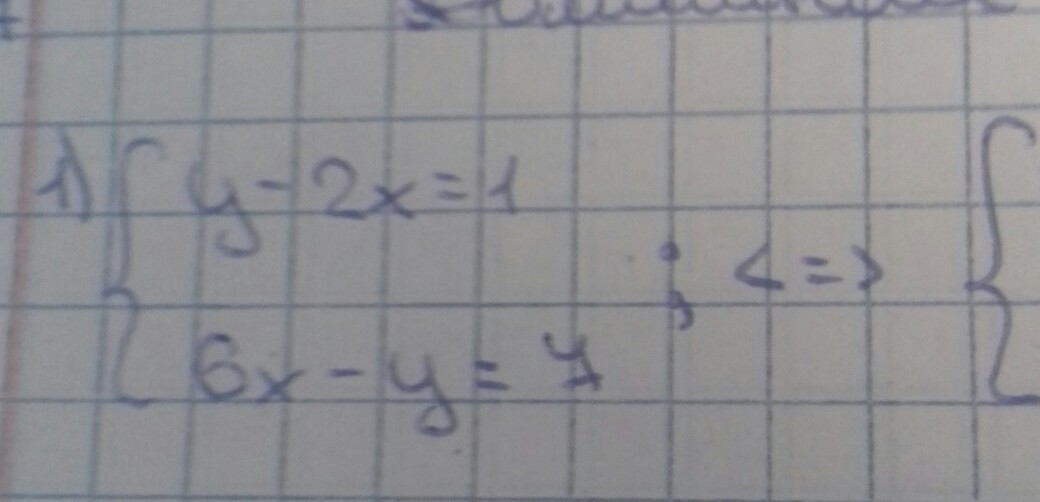 1) { y - 2x = 1
6x - y = 7 ; <=> {